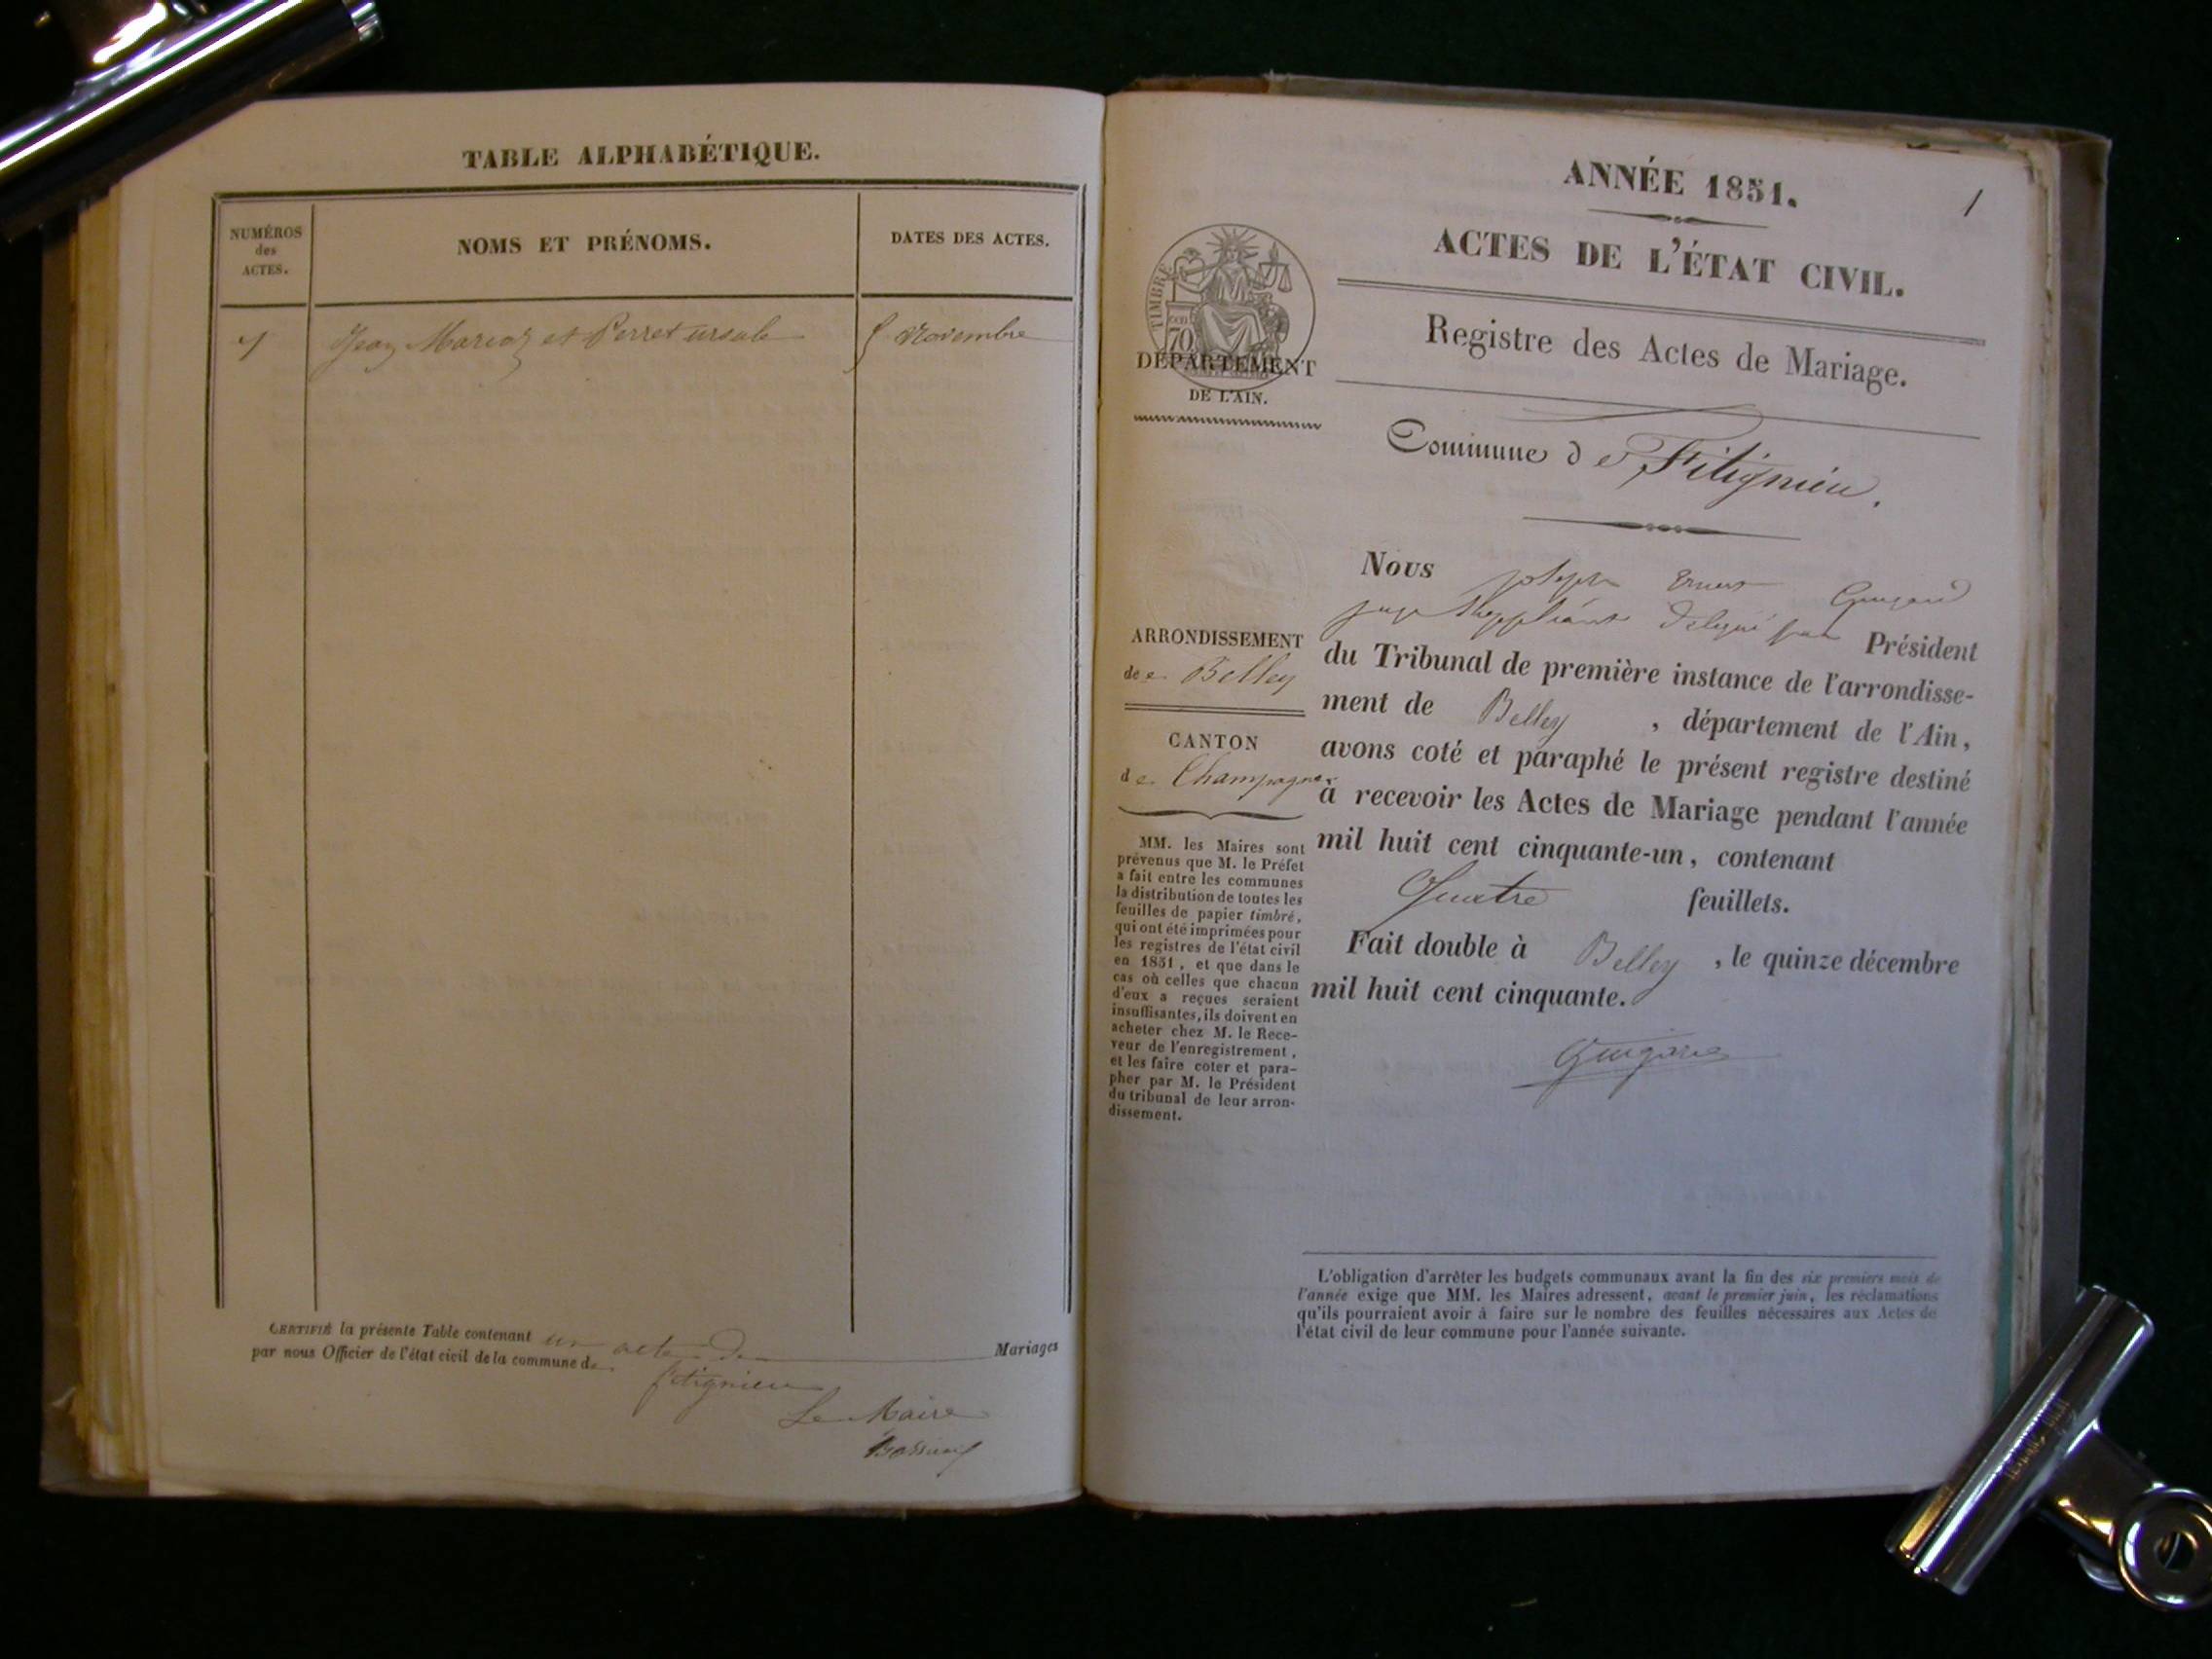 TABLE ALPHABÉTIQUE.
NUMÉROS
des
ACTES.
NOMS ET PRÉNOMS.
DATES DES ACTES.
Jean Marioz et Perret ursule
novembre
CERTIFIÉ la présente Table contenant un acte de Mariages
par nous Officier de l'état civil de la commune de
fitignieu
Le Maire
1
ANNÉE 1851.
ACTES DE L'ÉTAT CIVIL.
Registre des Actes de Mariage.
Commune de Fitignieu.
TIMBRE
70
DÉPARTEMENT
DE L'AIN.
ARRONDISSEMENT
de Belley
CANTON
de Champagne
MM. les Maires sont
prévenus que M. le Préfet
a fait entre les communes
la distribution de toutes les
feuilles de papier timbré,
qui ont été imprimées pour
les registres de l'état civil
en 1851, et que dans le
cas où celles que chacun
d'eux a reçues seraient
insuffisantes, ils doivent en
acheter chez M. le Rece-
veur de l'enregistrement,
et les faire coter et para-
pher par M. le Président
du tribunal de leur arron-
dissement.
Nous Joseph Ernest
juge suppléant délégué par Président
du Tribunal de première instance de l'arrondisse-
ment de Belley, département de l'Ain,
avons coté et paraphé le présent registre destiné
à recevoir les Actes de Mariage pendant l'année
mil huit cent cinquante-un, contenant
Quatre feuillets.
Fait double à Belley, le quinze décembre
mil huit cent cinquante.
L'obligation d'arrêter les budgets communaux avant la fin des six premiers mois de
l'année exige que MM. les Maires adressent, avant le premier juin, les réclamations
qu'ils pourraient avoir à faire sur le nombre des feuilles nécessaires aux Actes de
l'état civil de leur commune pour l'année suivante.